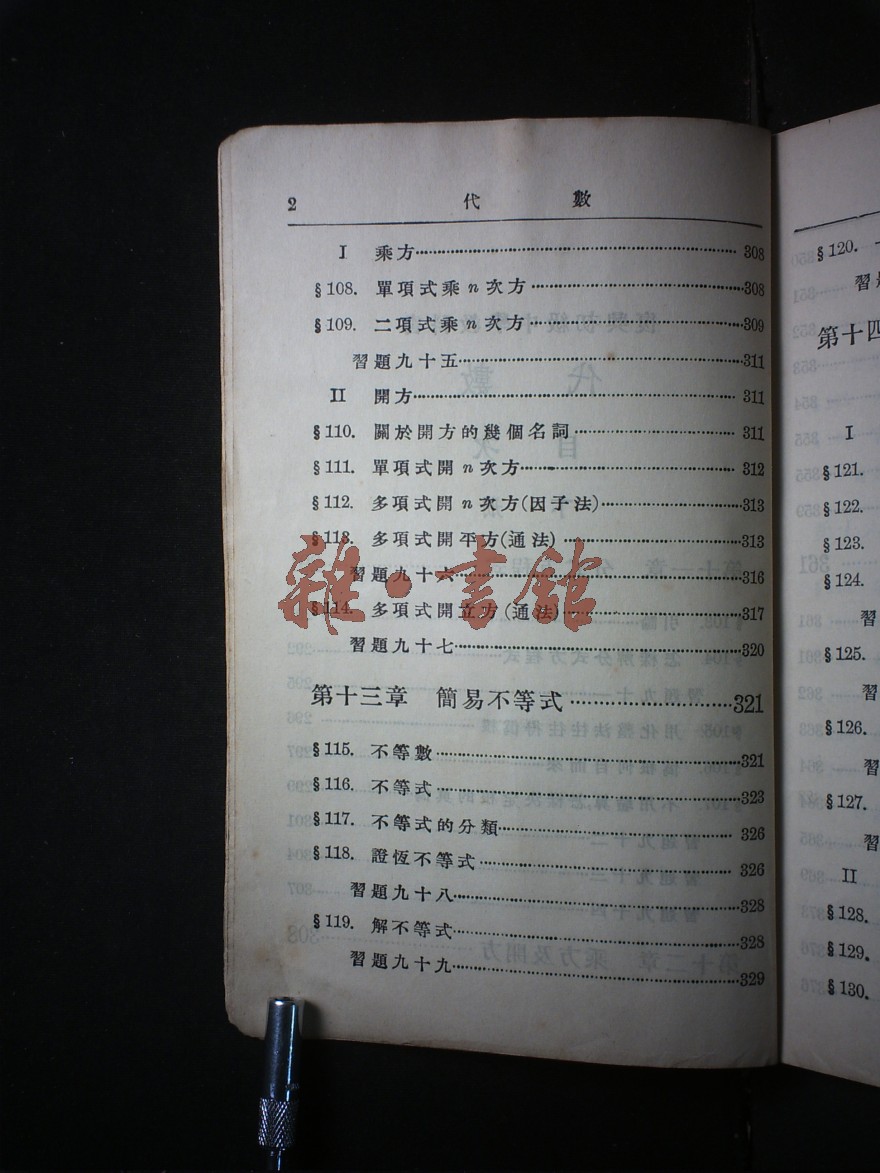 2 代數
I 乘方 308
§108. 單項式乘n次方 308
§109. 二項式乘n次方 309
習題九十五 311
II 開方 311
§110. 關於開方的幾個名詞 311
§111. 單項式開n次方 312
§112. 多項式開n次方(因子法) 313
§113. 多項式開平方(通法) 313
習題九十六 316
§114. 多項式開立方(通法) 317
習題九十七 320
第十三章 簡易不等式 321
§115. 不等數 321
§116. 不等式 323
§117. 不等式的分類 326
§118. 證恆不等式 326
習題九十八 328
§119. 解不等式 328
習題九十九 329
雜·書館
§120.
習
第十四
I
§121.
§122.
§123.
§124.
習
§125.
習
§126.
習
§127.
習
II
§128.
§129.
§130.